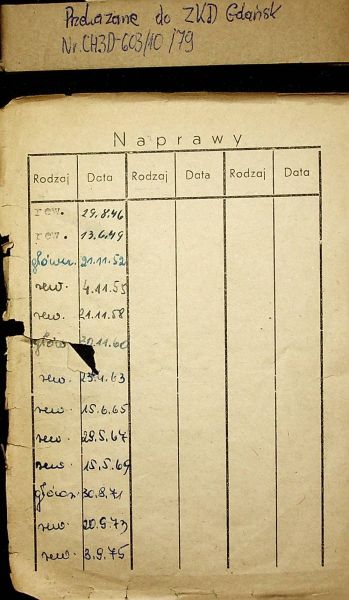 Przekazane do ZKD Gdańsk
Nr. CH3D-603/10/79
Naprawy
Rodzaj Data Rodzaj Data Rodzaj Data
rew. 29.8.46
rew. 13.6.49
główn. 21.11.52
rew. 4.11.55
rew. 21.11.58
głów. 30.11.60
rew. 23.4.63
rew. 15.6.65
rew. 29.5.67
rew. 15.5.69
główn. 30.8.71
rew. 20.9.73
rew. 3.9.75